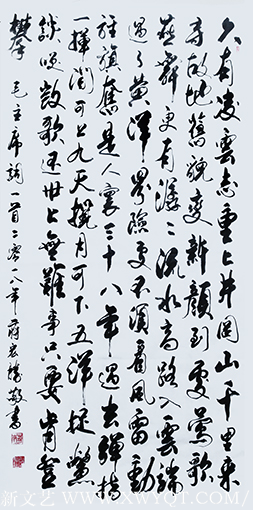 久有凌雲志重上井岡山千里來
尋故地舊貌變新顏到處鶯歌
燕舞更有潺潺流水高路入雲端
過了黃洋界險處不須看風雷動
旌旗奮是人寰三十八年過去彈指
一揮間可上九天攬月可下五洋捉鱉
談笑凱歌還世上無難事只要肯登
攀 毛主席詞一首二零一八年蔣敬書
新文艺